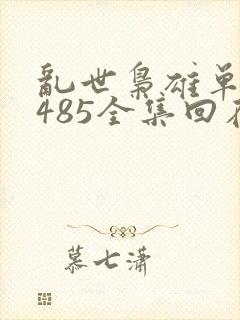 乱世枭雄单
485全集回
慕七潇